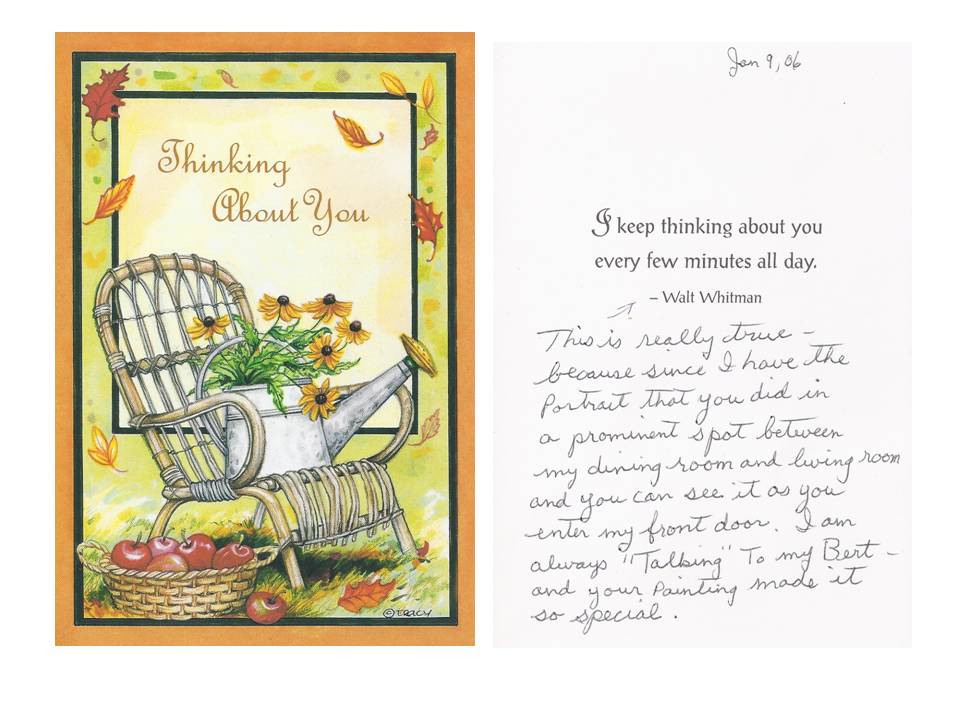 Thinking
About You
© TRACY
Jan 9, 06
I keep thinking about you
every few minutes all day.
– Walt Whitman
This is really true –
because since I have the
Portrait that you did in
a prominent spot between
my dining room and living room
and you can see it as you
enter my front door. I am
always "Talking" To my Bert –
and your Painting made it
so special.